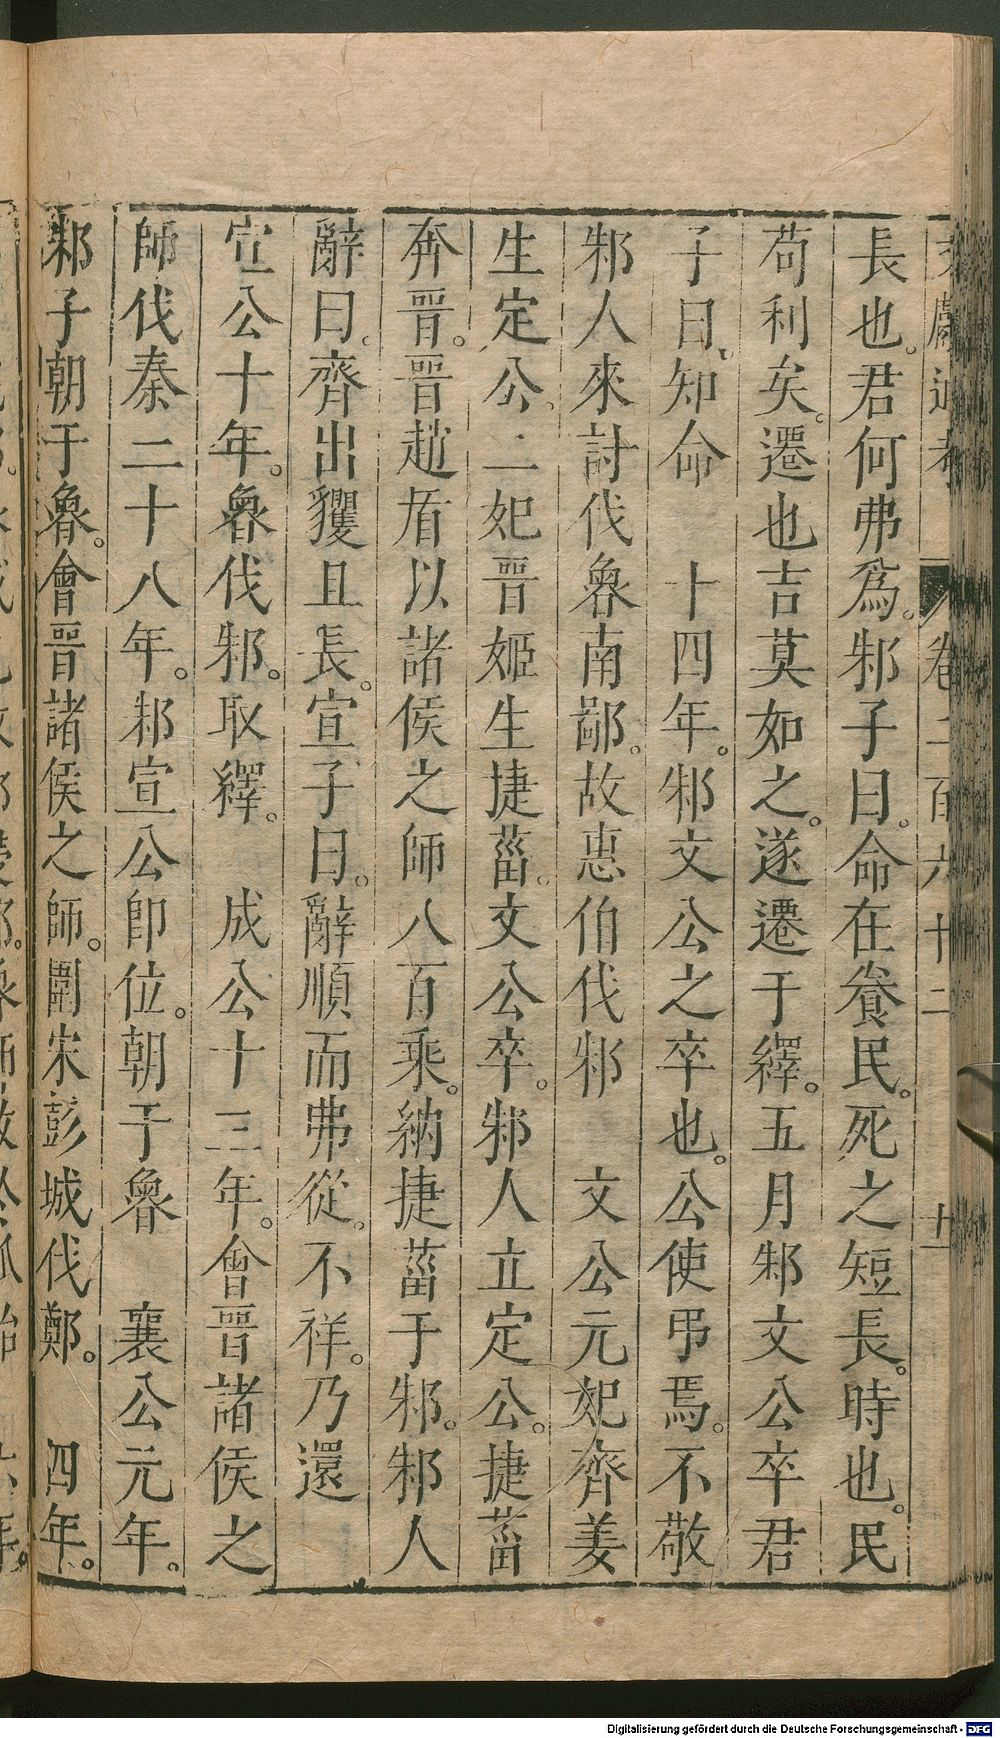 長也。君何弗爲。邾子曰。命在養民。死之短長。時也。民
苟利矣。遷也吉莫如之。遂遷于繹。五月邾文公卒君
子曰。知命　十四年。邾文公之卒也。公使弔焉。不敬
邾人來討伐魯南鄙。故惠伯伐邾　文公元妃齊姜
生定公。二妃晉姬生捷菑。文公卒。邾人立定公。捷菑
奔晉。晉趙盾以諸侯之師八百乘。納捷菑于邾。邾人
辭曰。齊出貜且長。宣子曰。辭順而弗從。不祥。乃還
宣公十年。魯伐邾。取繹。　成公十三年。會晉諸侯之
師伐秦二十八年。邾宣公卽位。朝于魯　襄公元年。
邾子朝于魯。會晉諸侯之師。圍宋彭城伐鄭。　四年。
文獻通考　卷二百六十二　十一
Digitalisierung gefördert durch die Deutsche Forschungsgemeinschaft - DFG